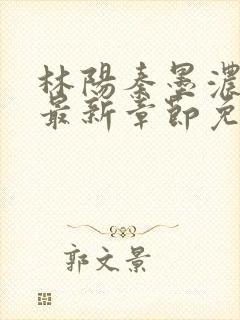 林陽秦墨濃
最新章節免
郭文景